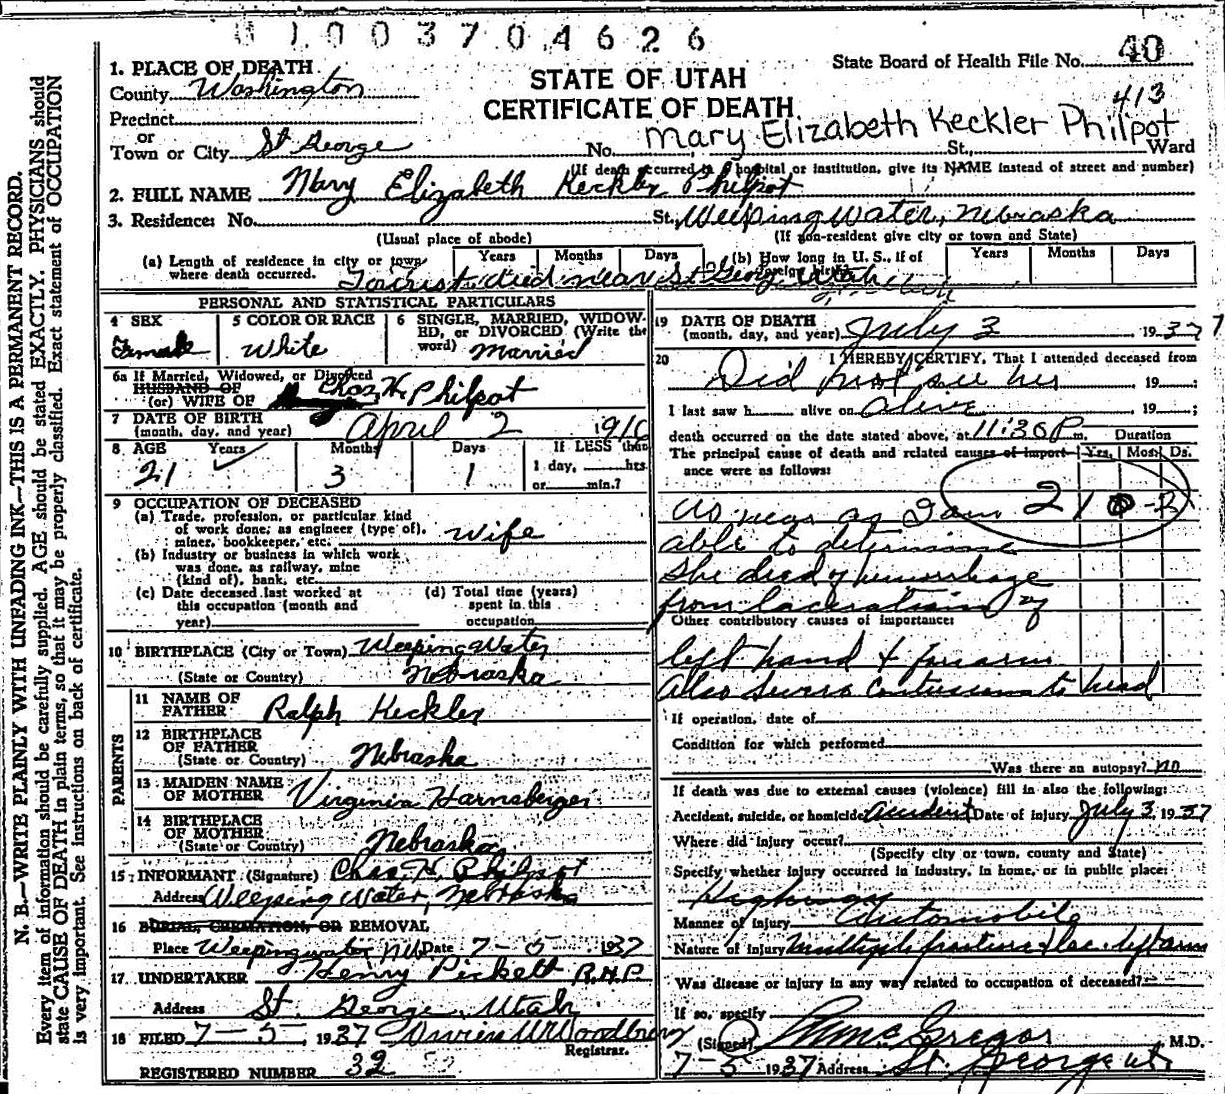 01003704626
State Board of Health File No. 40
1. PLACE OF DEATH
STATE OF UTAH
County Washington
CERTIFICATE OF DEATH
413
Precinct
or
Mary Elizabeth Keckler Philpot
Town or City St George No. St., Ward
(If death occurred in hospital or institution, give its NAME instead of street and number)
2. FULL NAME Mary Elizabeth Keckler Philpot
3. Residence: No. St. Weeping Water, Nebraska
(Usual place of abode) (If non-resident give city or town and State)
(a) Length of residence in city or town where death occurred. Years Months Days (b) How long in U. S., if of foreign birth Years Months Days
Tourist died near St George Utah
PERSONAL AND STATISTICAL PARTICULARS
4 SEX
Female
5 COLOR OR RACE
White
6 SINGLE, MARRIED, WIDOWED, or DIVORCED (Write the word) Married
6a If Married, Widowed, or Divorced
HUSBAND OF
(or) WIFE OF Chas H. Philpot
7 DATE OF BIRTH
(month, day, and year) April 2 1916
8 AGE Years Months Days If LESS than
21 3 1 1 day, hrs.
or min.?
9 OCCUPATION OF DECEASED
(a) Trade, profession, or particular kind
of work done, as engineer (type of),
miner, bookkeeper, etc. Wife
(b) Industry or business in which work
was done, as railway, mine
(kind of), bank, etc.
(c) Date deceased last worked at
this occupation (month and
year)
(d) Total time (years)
spent in this
occupation
10 BIRTHPLACE (City or Town) Weeping Water
(State or Country) Nebraska
PARENTS
11 NAME OF
FATHER Ralph Keckler
12 BIRTHPLACE
OF FATHER
(State or Country) Nebraska
13 MAIDEN NAME
OF MOTHER Virginia Harnsberger
14 BIRTHPLACE
OF MOTHER
(State or Country) Nebraska
15 INFORMANT (Signature) Chas. H. Philpot
Address Weeping Water, Nebraska
16 BURIAL, CREMATION, OR REMOVAL
Place Weepingwater Neb Date 7-5 1937
17 UNDERTAKER Henry Pickett R.H.P.
Address St. George, Utah
18 FILED 7-5, 1937 W Woodbury
Registrar.
REGISTERED NUMBER 32
19 DATE OF DEATH
(month, day, and year) July 3 1937
20 I HEREBY CERTIFY, That I attended deceased from
Did not see her 19 ;
I last saw h alive on Alive 19 ;
death occurred on the date stated above, at 11:30 P m. Duration
The principal cause of death and related causes of importance were as follows: Yrs. Mos. Ds.
210
As near as I am
able to determine
She died of hemorrhage
from lacerations of
Other contributory causes of importance:
left hand & forearm
Also severe contusions to head
If operation, date of
Condition for which performed
Was there an autopsy? no
If death was due to external causes (violence) fill in also the following:
Accident, suicide, or homicide Accident Date of injury July 3, 1937
Where did injury occur?
(Specify city or town, county and State)
Specify whether injury occurred in industry, in home, or in public place:
Highway
Manner of injury Automobile
Nature of injury Multiple fracture & lac. left arm
Was disease or injury in any way related to occupation of deceased?
If so, specify
(Signed) McGregor M.D.
7-5 1937 Address St. George Ut
N. B.—WRITE PLAINLY WITH UNFADING INK—THIS IS A PERMANENT RECORD.
Every item of information should be carefully supplied. AGE should be stated EXACTLY. PHYSICIANS should
state CAUSE OF DEATH in plain terms, so that it may be properly classified. Exact statement of OCCUPATION
is very important. See instructions on back of certificate.